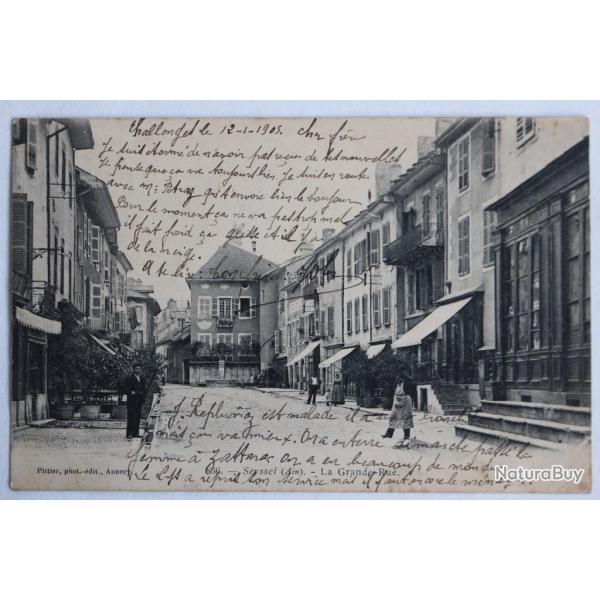 Challonges le 12-1-1905 cher frère
Je suis étonné de n'avoir pas reçu de tes nouvelles
Je pense que ça va toujours bien. Je suis en route
avec Mr qui t'envoie bien le bonjour
Pour le moment ça ne va pas trop mal
il fait froid ça glette et il a
de la neige.
A te lire
J. est malade
mais ça va mieux. On a enterré dimanche passé la
femme à on a eu beaucoup de monde
Le a repris son service mais il faut encore le
Pittier, phot.-édit., Annecy
866. — Seyssel (Ain). — La Grande Rue.
NaturaBuy